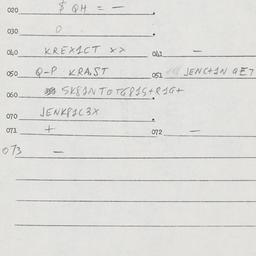 020 $ QH = —
030 0
040 KREX1CT XX 041 —
050 Q-P KRAST 051 JENC+1N QE7
060
070 JENKP1C3X
071 + 072 —
073 —